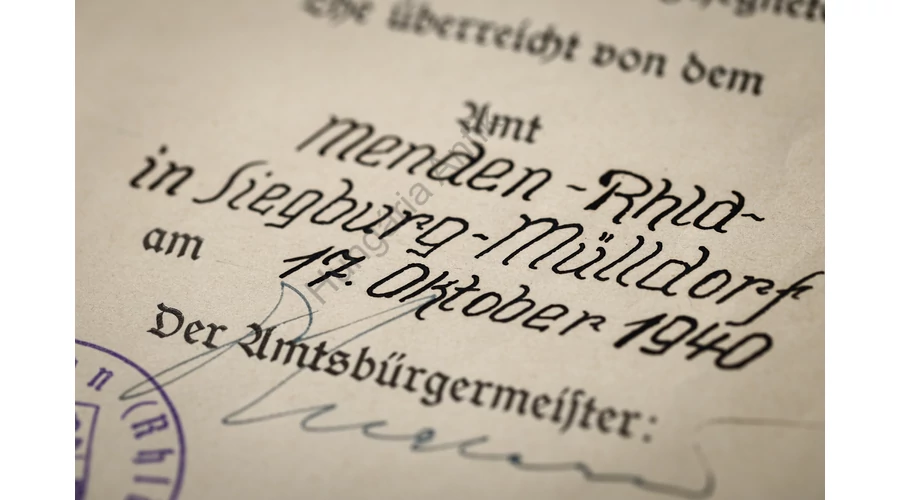 Ehe überreicht von dem
Amt
Menden-Rhld-
in Siegburg-Mülldorf
am 17. Oktober 1940
Der Amtsbürgermeister:
n (Rhl
Hungaria